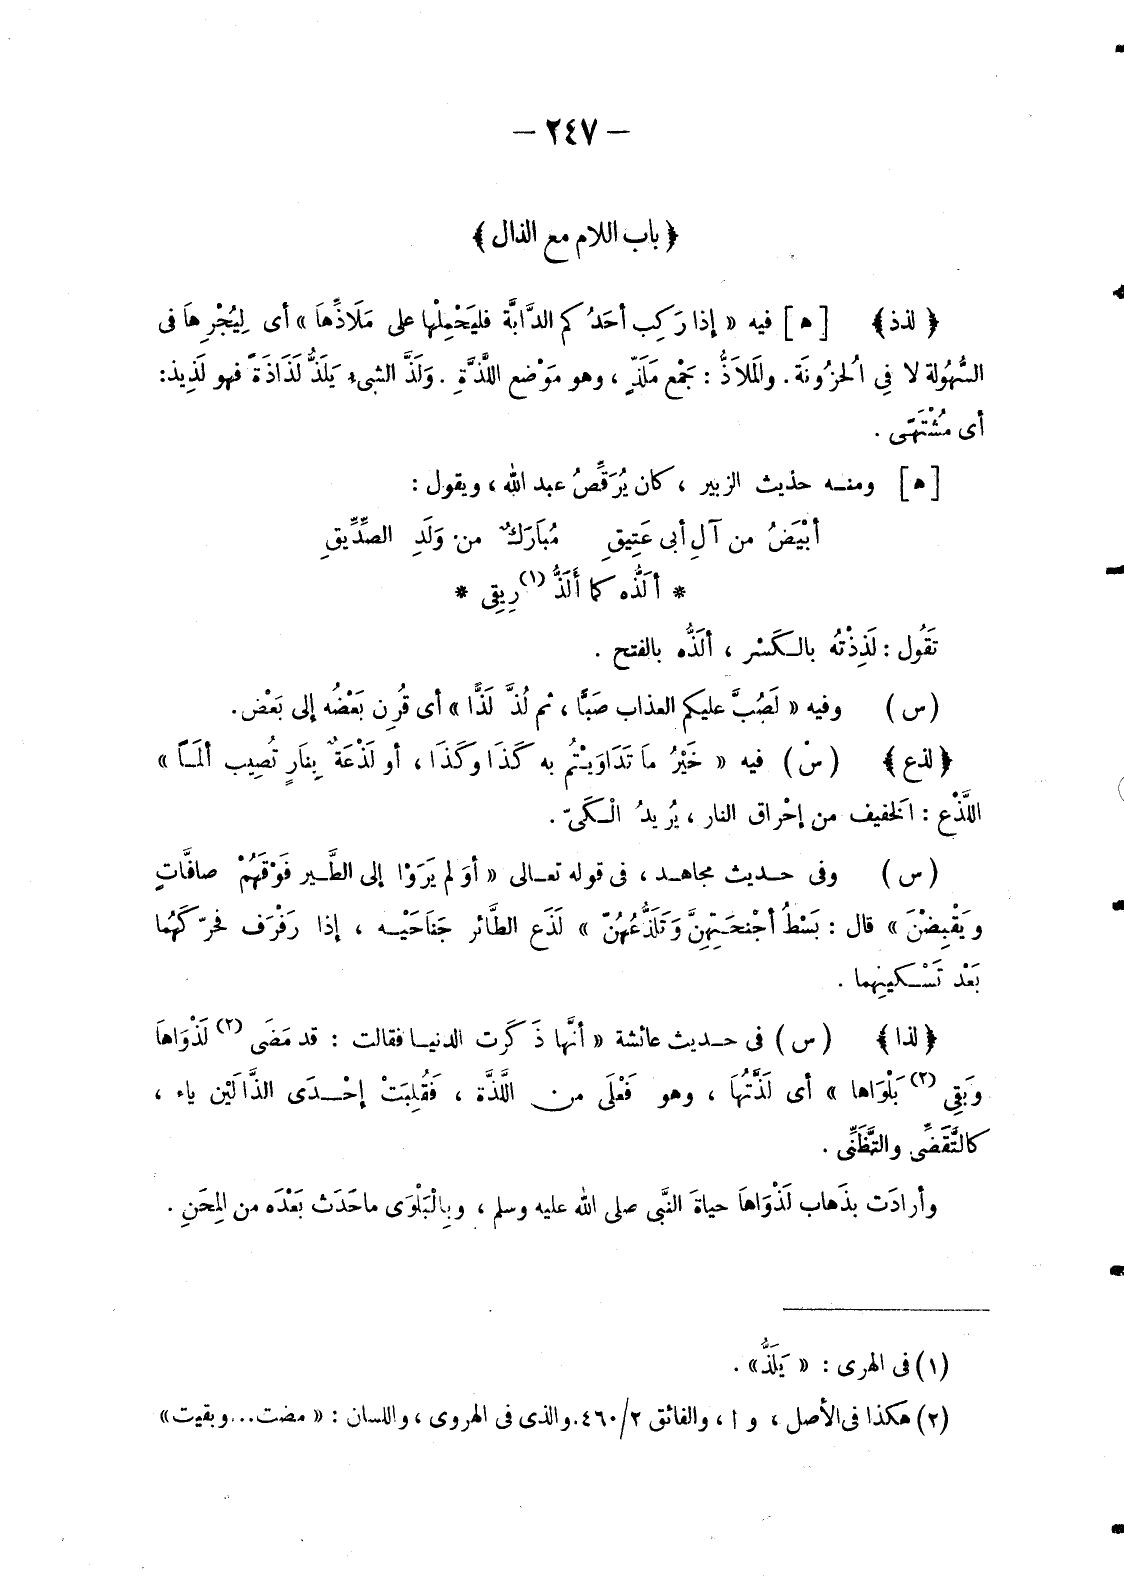 — ٢٤٧ —
﴿ باب اللام مع الذال ﴾
﴿ لذذ ﴾ [ ه ] فيه « إذا رَكِب أحَدُكم الدَّابَّة فليَحْمِلْها على مَلَاذِّهَا » أى لِيُجْرِهَا فى
السُّهُولة لا فِى الْحُزُونَة . والمَلَاذُّ : جَمْع مَلَذٍّ ، وهو مَوْضع اللَّذَّةِ . وَلَذَّ الشىء يَلَذُّ لَذَاذَةً فهو لَذِيذ :
أى مُشْتَهًى .
[ ه ] ومنه حديث الزبير ، كان يُرَقِّصُ عبد الله ، ويقول :
أبْيَضُ من آلِ أبى عَتِيقِ مُبَارَكٌ من وَلَدِ الصِّدِّيقِ
* ألَذُّه كما أَلَذُّ (١) رِيقِى *
تَقُول : لَذِذْتُه بالكَسْر ، ألَذُّه بالفتح .
( س ) وفيه « لَصُبَّ عليكم العذاب صَبًّا ، ثم لُذَّ لَذًّا » أى قُرِن بَعْضُه إلى بَعْض .
﴿ لذع ﴾ ( س ) فيه « خَيْرُ مَا تَدَاوَيْتُم به كَذَا وكَذَا ، أو لَذْعَةٌ بِنَارٍ تُصِيب ألَمًا »
اللَّذْع : الخفيف من إحْراق النار ، يُريدُ الْكَىّ .
( س ) وفى حديث مجاهد ، فى قوله تعالى « أوَ لم يَرَوْا إلى الطَّير فَوْقَهُمْ صافَّاتٍ
ويَقْبِضْنَ » قال : بَسْطُ أجْنحَتِهِنَّ وَتَلَذُّعُهُنّ » لَذَع الطَّائر جَنَاحَيْه ، إذا رَفْرَف فحرّكَهُما
بَعْد تَسْكينِهما .
﴿ لذا ﴾ ( س ) فى حديث عائشة « أنَّها ذَكَرت الدنيا فقالت : قد مَضَى (٢) لَذْوَاهَا
وَبَقِى (٢) بَلْوَاها » أى لَذَّتُهَا ، وهو فَعْلَى من اللَّذَّة ، فَقُلِبَتْ إحْدَى الذَّالَيْن ياء ،
كالتَّقَضِّى والتَّظَنِّى .
وأرادَت بذَهاب لَذْوَاهَا حياةَ النَّبى صلى الله عليه وسلم ، وبِالْبَلْوَى ماحَدَث بَعْدَه من المِحَنِ .
(١) فى الهرى : « يَلَذُّ » .
(٢) هكذا فى الأصل ، و ا ، والفائق ٤٦٠/٢. والذى فى الهروى ، واللسان : « مضت...وبقيت »